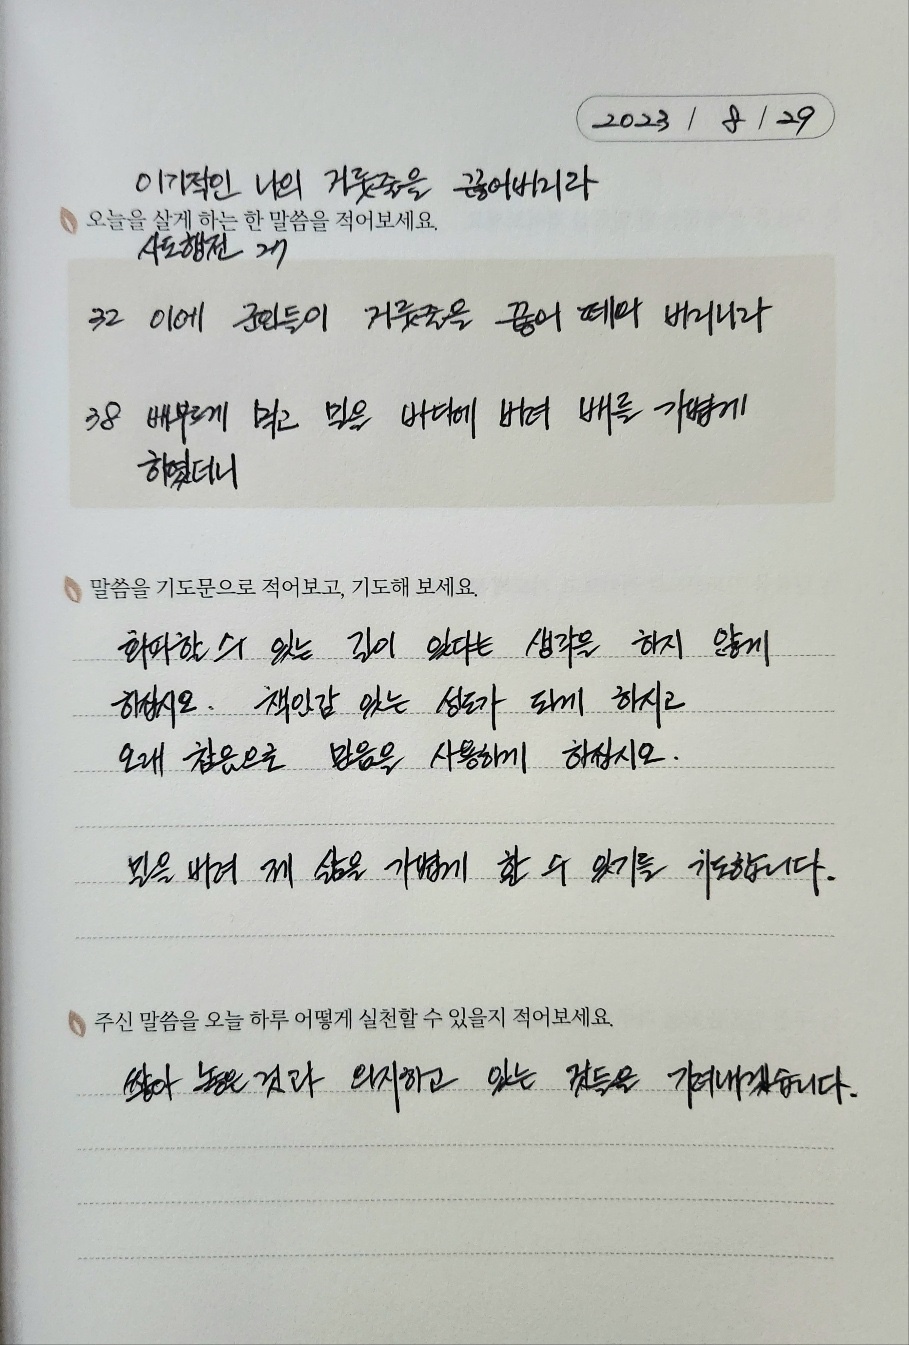 2023 / 8 / 29
이기적인 나의 거룻줄을 끊어버리라
오늘을 살게 하는 한 말씀을 적어보세요.
사도행전 27
32 이에 군인들이 거룻줄을 끊어 떼어 버리니라
38 배부르게 먹고 밀을 바다에 버려 배를 가볍게
하였더니
말씀을 기도문으로 적어보고, 기도해 보세요.
화파할 수 있는 길이 있다는 생각을 하지 않게
하십시오. 책임감 있는 성도가 되게 하시고
오래 참음으로 믿음을 사용하게 하십시오.
밀을 버려 제 삶을 가볍게 할 수 있기를 기도합니다.
주신 말씀을 오늘 하루 어떻게 실천할 수 있을지 적어보세요.
쌓아 놓은 것과 의지하고 있는 것들을 가려내겠습니다.